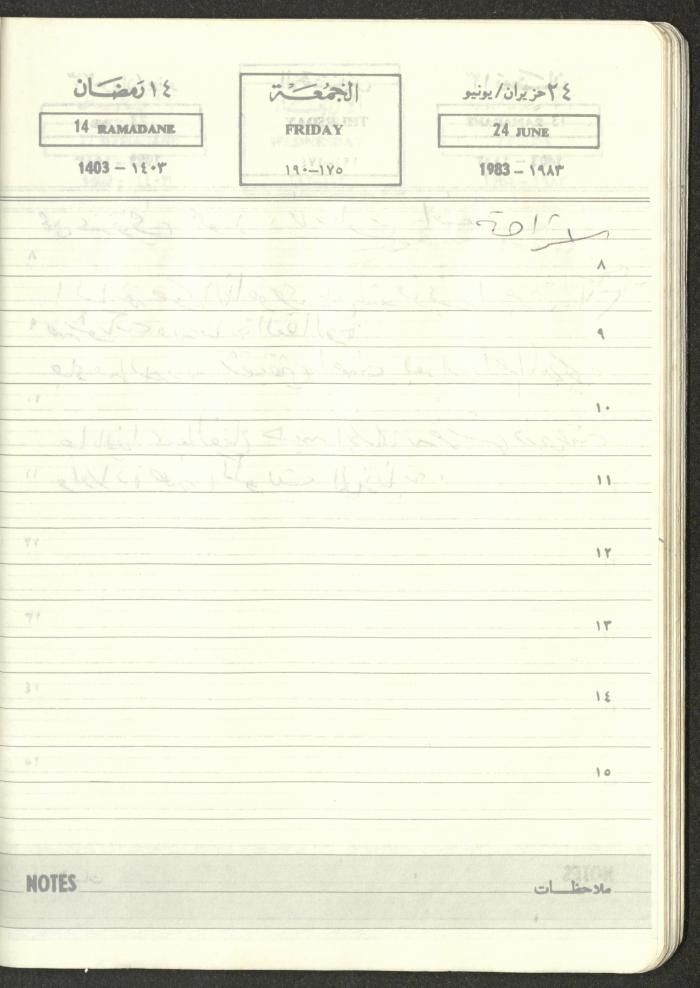 ١٤ رمضان
الجمعة
٢٤ حزيران/يونيو
14 RAMADANE
FRIDAY
24 JUNE
1403 – ١٤٠٣
١٩٠–١٧٥
1983 – ١٩٨٣
استراحة
٨
٩
١٠
١١
١٢
١٣
١٤
١٥
NOTES
ملاحظات